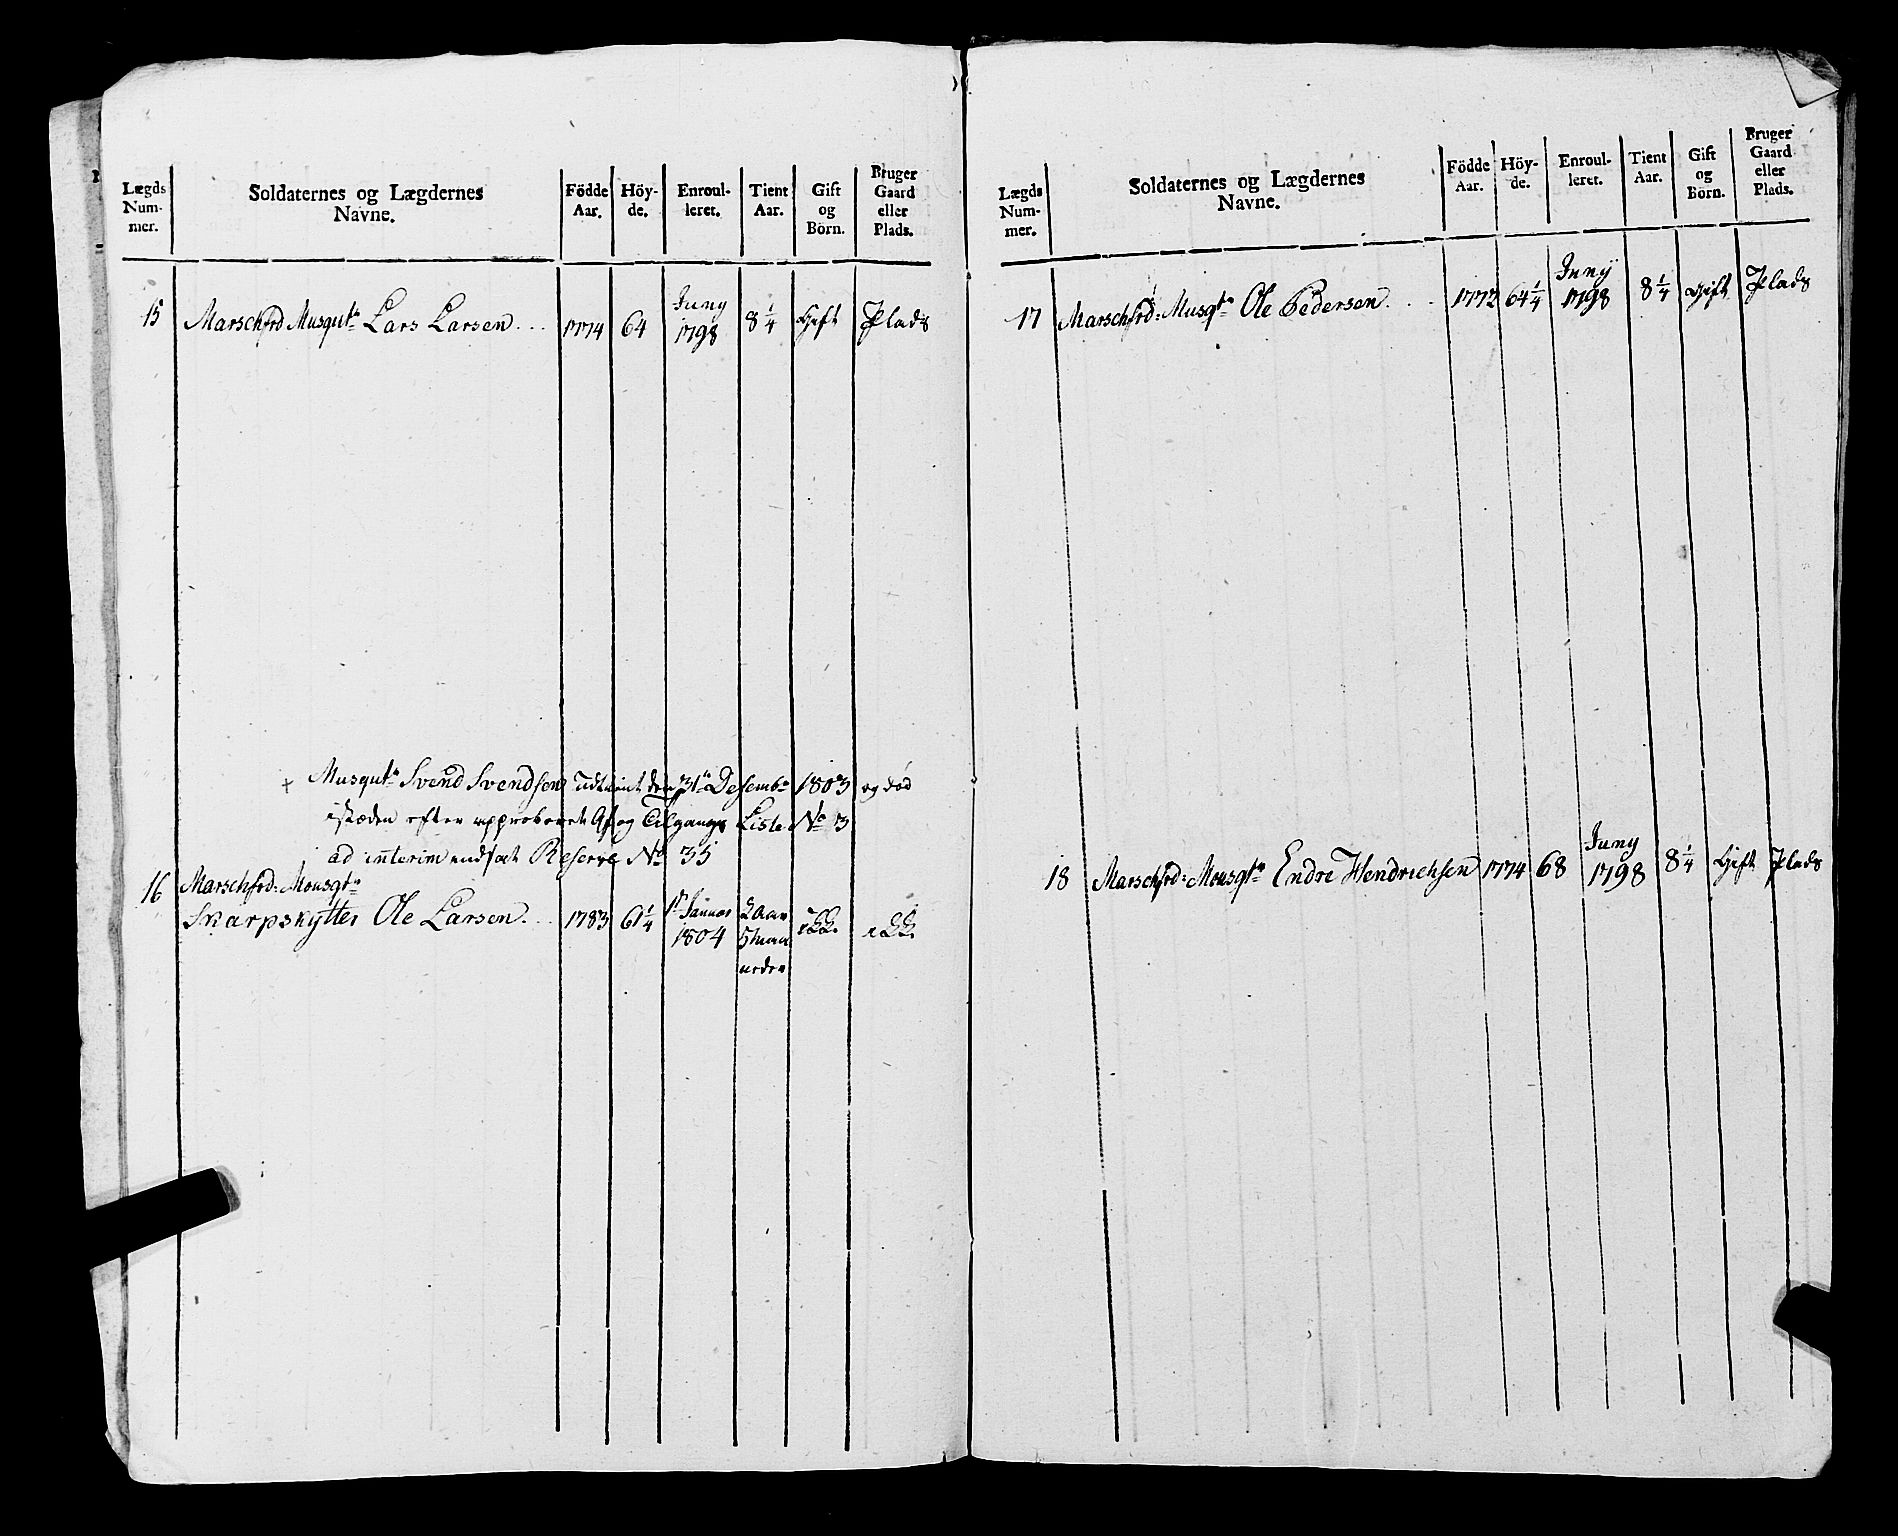 Lægds Num- mer. | Soldaternes og Lægdernes Navne. | Födde Aar. | Höy- de. | Enroul- leret. | Tient Aar. | Gift og Börn. | Bruger Gaard eller Plads.
15 Marschfrd Musqutr Lars Larsen. .. 1774 64 Juny 1798 8 1/4 Gift Plads
+ Musqutr Svend Svendsen Udtient den 31te Desembr 1803 og död
istæden efter approberede Af og Tilgangs Liste No 3
ad interim indsat Reserve No 35
16 Marschfrd: Mousqtr
Skarpskytter Ole Larsen. .. 1783 61 1/4 1te Januar 1804 2 Aar 5 maa neder
Lægds Num- mer. | Soldaternes og Lægdernes Navne. | Födde Aar. | Höy- de. | Enroul- leret. | Tient Aar. | Gift og Börn. | Bruger Gaard eller Plads.
17 Marschfrd: Musqtr Ole Pedersen. .. 1772 64 1/4 Juny 1798 8 1/4 Gift Plads
18 Marschfrd: Mousqtr Endre Hendrichsen 1774 68 Juny 1798 8 1/4 Gift Plads